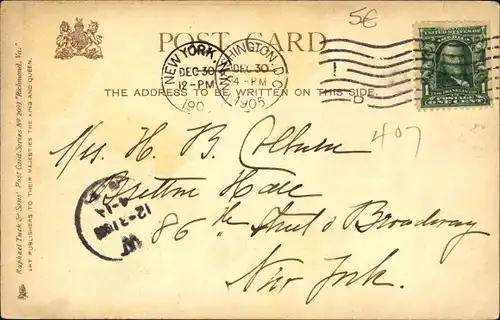 5€
POST CARD
NEW YORK, N.Y.
DEC 30
12-PM
190
WASHINGTON, D.C.
DEC 30
4-PM
1905
THE ADDRESS TO BE WRITTEN ON THIS SIDE.
407
Mrs. H. B. Colburn
Bretton Hall
86th Street & Broadway
New York.
Raphael Tuck & Sons' Post Card Series No 2091 "Richmond, Va."
ART PUBLISHERS TO THEIR MAJESTIES THE KING AND QUEEN.
ONE CENT